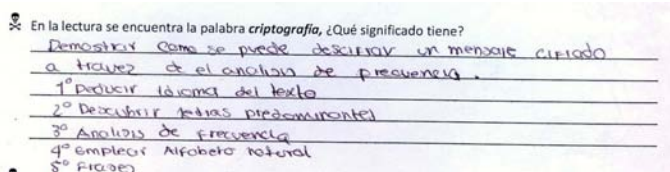 En la lectura se encuentra la palabra criptografía, ¿Qué significado tiene?
Demostrar como se puede descifrar un mensaje cifrado
a travez de el analisis de frecuencia.
1° Deducir idioma del texto
2° Descubrir letras predominantes
3° Analisis de frecuencia
4° Emplear Alfabeto natural
5° Frases